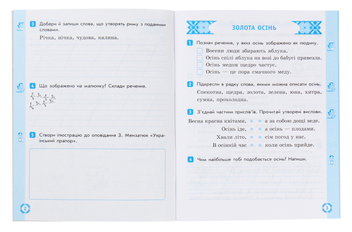 Добери й запиши слова, що утворять риму з поданими словами.
Річка, нічка, чудова, калина.
Що зображено на малюнку? Склади речення.
Створи ілюстрацію до оповідання З. Мензатюк «Український прапор».
ЗОЛОТА ОСІНЬ
1 Познач речення, у яких осінь зображено як людину.
Восени люди збирають яблука.
Осінь спілі яблука на возі до бабусі привезла.
Осінь медом щедро частує.
Осінь — це пора смачного меду.
2 Підкресли в рядку слова, якими можна описати осінь.
Спекотна, щедра, золота, зелена, юна, хитра, сумна, прохолодна.
3 З'єднай частини прислів'я. Прочитай утворені вислови.
Весна красна квітами, а за собою дощі веде.
Осінь іде, а осінь — плодами.
Хвали літо, сім погод у нас.
В осінній час коли осінь прийде.
4 Чим найбільше тобі подобається осінь? Напиши.